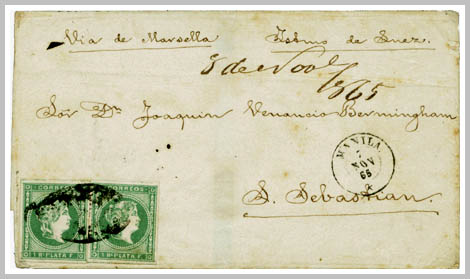 Via de Marsella Istmo de Suez.
8 de Nov 1865
Sor Dn Joaquin Venancio Bermingham
MANILA
7
NOV
65
S. Sebastian.
CORREOS CORREOS
1 Rl PLATA F. 1 Rl PLATA F.